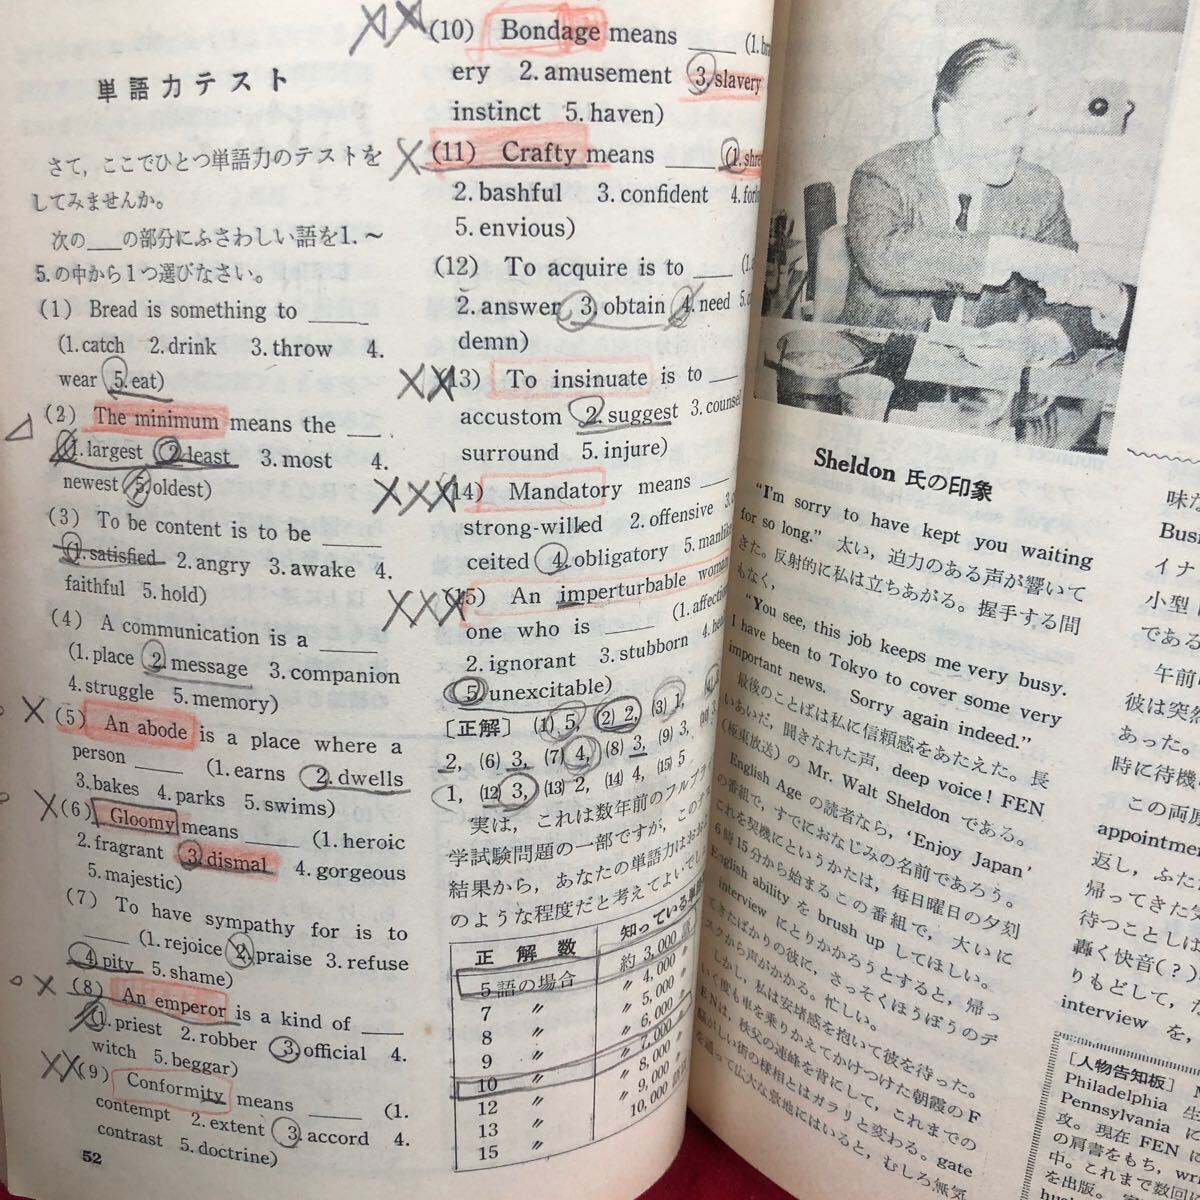 単語力テスト
さて，ここでひとつ単語力のテストを
してみませんか。
次の___の部分にふさわしい語を1.～
5.の中から1つ選びなさい。
(1) Bread is something to ____
(1.catch 2.drink 3.throw 4.
wear 5.eat)
(2) The minimum means the ___
(1.largest 2.least 3.most 4.
newest 5.oldest)
(3) To be content is to be ____
(1.satisfied 2.angry 3.awake 4.
faithful 5.hold)
(4) A communication is a ____
(1.place 2.message 3.companion
4.struggle 5.memory)
(5) An abode is a place where a
person ____ (1.earns 2.dwells
3.bakes 4.parks 5.swims)
(6) Gloomy means ____ (1.heroic
2.fragrant 3.dismal 4.gorgeous
5.majestic)
(7) To have sympathy for is to
____ (1.rejoice 2.praise 3.refuse
4.pity 5.shame)
(8) An emperor is a kind of ____
(1.priest 2.robber 3.official 4.
witch 5.beggar)
(9) Conformity means ____ (1.
contempt 2.extent 3.accord 4.
contrast 5.doctrine)
52
(10) Bondage means ____ (1.
ery 2.amusement 3.slavery
instinct 5.haven)
(11) Crafty means ____ (1.
2.bashful 3.confident 4.
5.envious)
(12) To acquire is to ____ (1.
2.answer 3.obtain 4.need 5.
demn)
(13) To insinuate is to ___
accustom 2.suggest 3.counsel
surround 5.injure)
(14) Mandatory means ____
strong-willed 2.offensive 3.
ceited 4.obligatory 5.
(15) An imperturbable woman
one who is ____ (1.
2.ignorant 3.stubborn 4.
5.unexcitable)
〔正解〕 (1) 5, (2) 2, (3) 1,
2, (6) 3, (7) 4, (8) 3, (9) 3,
1, (12) 3, (13) 2, (14) 4, (15) 5
実は，これは数年前のフルブラ
学試験問題の一部ですが，この
結果から，あなたの単語力は
のような程度だと考えてよいでし
正解数 知っている単語
5語の場合 約 3,000 語
7 〃 〃 4,000 〃
8 〃 〃 5,000 〃
9 〃 〃 6,000 〃
10 〃 〃 7,000 〃
12 〃 〃 8,000 〃
13 〃 〃 9,000 〃
15 〃 10,000
Sheldon 氏の印象
“I'm sorry to have kept you waiting
for so long.” 太い，迫力のある声が響いて
きた。反射的に私は立ちあがる。握手する間
もなく，
“You see, this job keeps me very busy.
I have been to Tokyo to cover some very
important news. Sorry again indeed.”
最後のことばは私に信頼感をあたえた。長
いあいだ，聞きなれた声，deep voice! FEN
(極東放送) の Mr. Walt Sheldon である。
English Age の読者なら，‘Enjoy Japan’
の番組で，すでにおなじみの名前であろう。
これを契機にというかたは，毎日曜日の夕刻
6時15分から始まるこの番組で，大いに
English ability を brush up してほしい。
interview にとりかかろうとすると，帰っ
てきたばかりの彼に，さっそくほうぼうのデ
スクから声がかかる。忙しい。
しかし，私は安堵感を抱いて彼を待った。
いく度も車を乗りかえてかけつけた朝霞のF
ENは，秩父の連峰を背にして，これまでの
騒がしい街の様相とはガラリと変わる。gate
を通って広大な敷地にはいると，むしろ無気
味な
Busi
イナ
小型
である
午前
彼は突然
あった。
時に待機
この両原
appointmen
返し，ふた
帰ってきた
待つことしば
轟く快音(?)
りもどして，
interview を，
〔人物告知板〕
Philadelphia 生
Pennsylvania に
攻。現在 FEN に
の肩書をもち，wr
中。これまで数回
を出版。